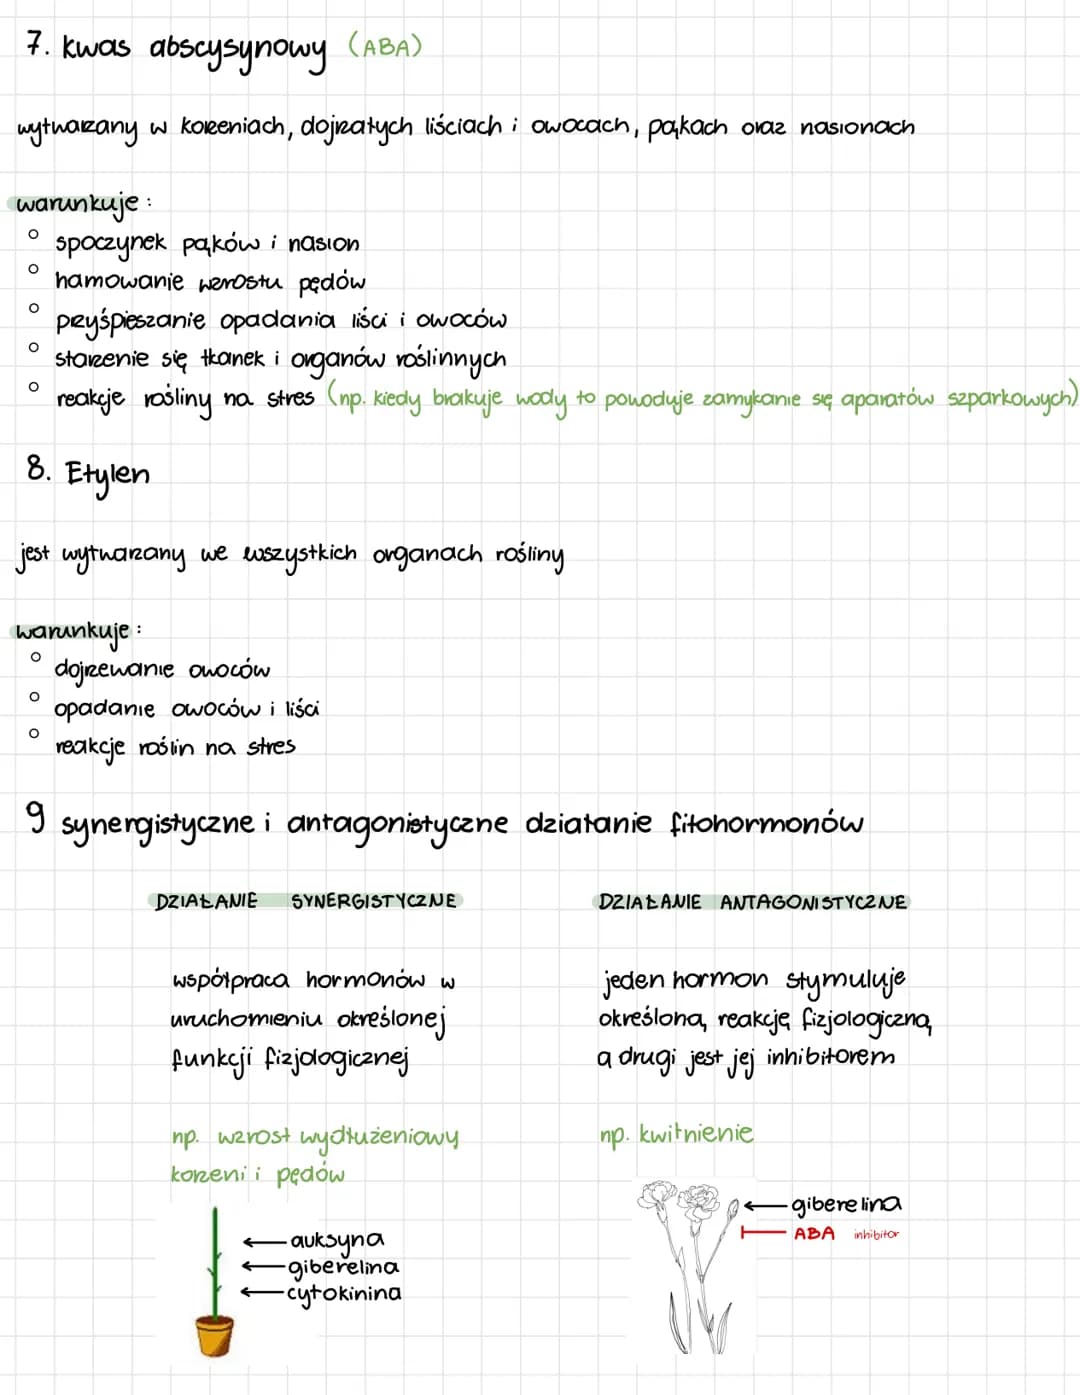 7. kwas abscysynowy (ABA)
wytwarzany w korzeniach, dojrzałych liściach i owocach, pąkach oraz nasionach
warunkuje:
° spoczynek pąków i nasion
° hamowanie wzrostu pędów
° przyśpieszanie opadania liści i owoców
° starzenie się tkanek i organów roślinnych
° reakcje rośliny na stres (np. kiedy brakuje wody to powoduje zamykanie się aparatów szparkowych)
8. Etylen
jest wytwarzany we wszystkich organach rośliny
warunkuje:
° dojrzewanie owoców
° opadanie owoców i liści
° reakcje roślin na stres
9 synergistyczne i antagonistyczne działanie fitohormonów
DZIAŁANIE SYNERGISTYCZNE
współpraca hormonów w
uruchomieniu określonej
funkcji fizjologicznej
np. wzrost wydłużeniowy
korzeni i pędów
auksyna
giberelina
cytokinina
DZIAŁANIE ANTAGONISTYCZNE
jeden hormon stymuluje
określoną reakcję fizjologiczną,
a drugi jest jej inhibitorem
np. kwitnienie
giberelina
ABA inhibitor